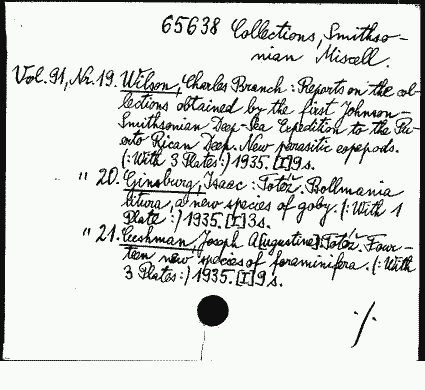 65638 Collections, Smithso-
nian Miscell.
Vol. 91, Nr. 19. Wilson, Charles Branch: Reports on the col-
lections obtained by the first Johnson-
Smithsonian Deep-Sea Expedition to the Pu-
erto Rican Deep. New parasitic copepods.
(: With 3 Plates :) 1935. [I] 9 s.
" 20. Ginsburg, Isaac: Totéž. Bollmania
litura, a new species of goby. (: With 1
Plate :) 1935. [I] 3 s.
" 21. Cushman, Joseph A[ugustine]: Totéž. Four-
teen new species of foraminifera. (: With
3 Plates :) 1935. [I] 9 s.
·/.